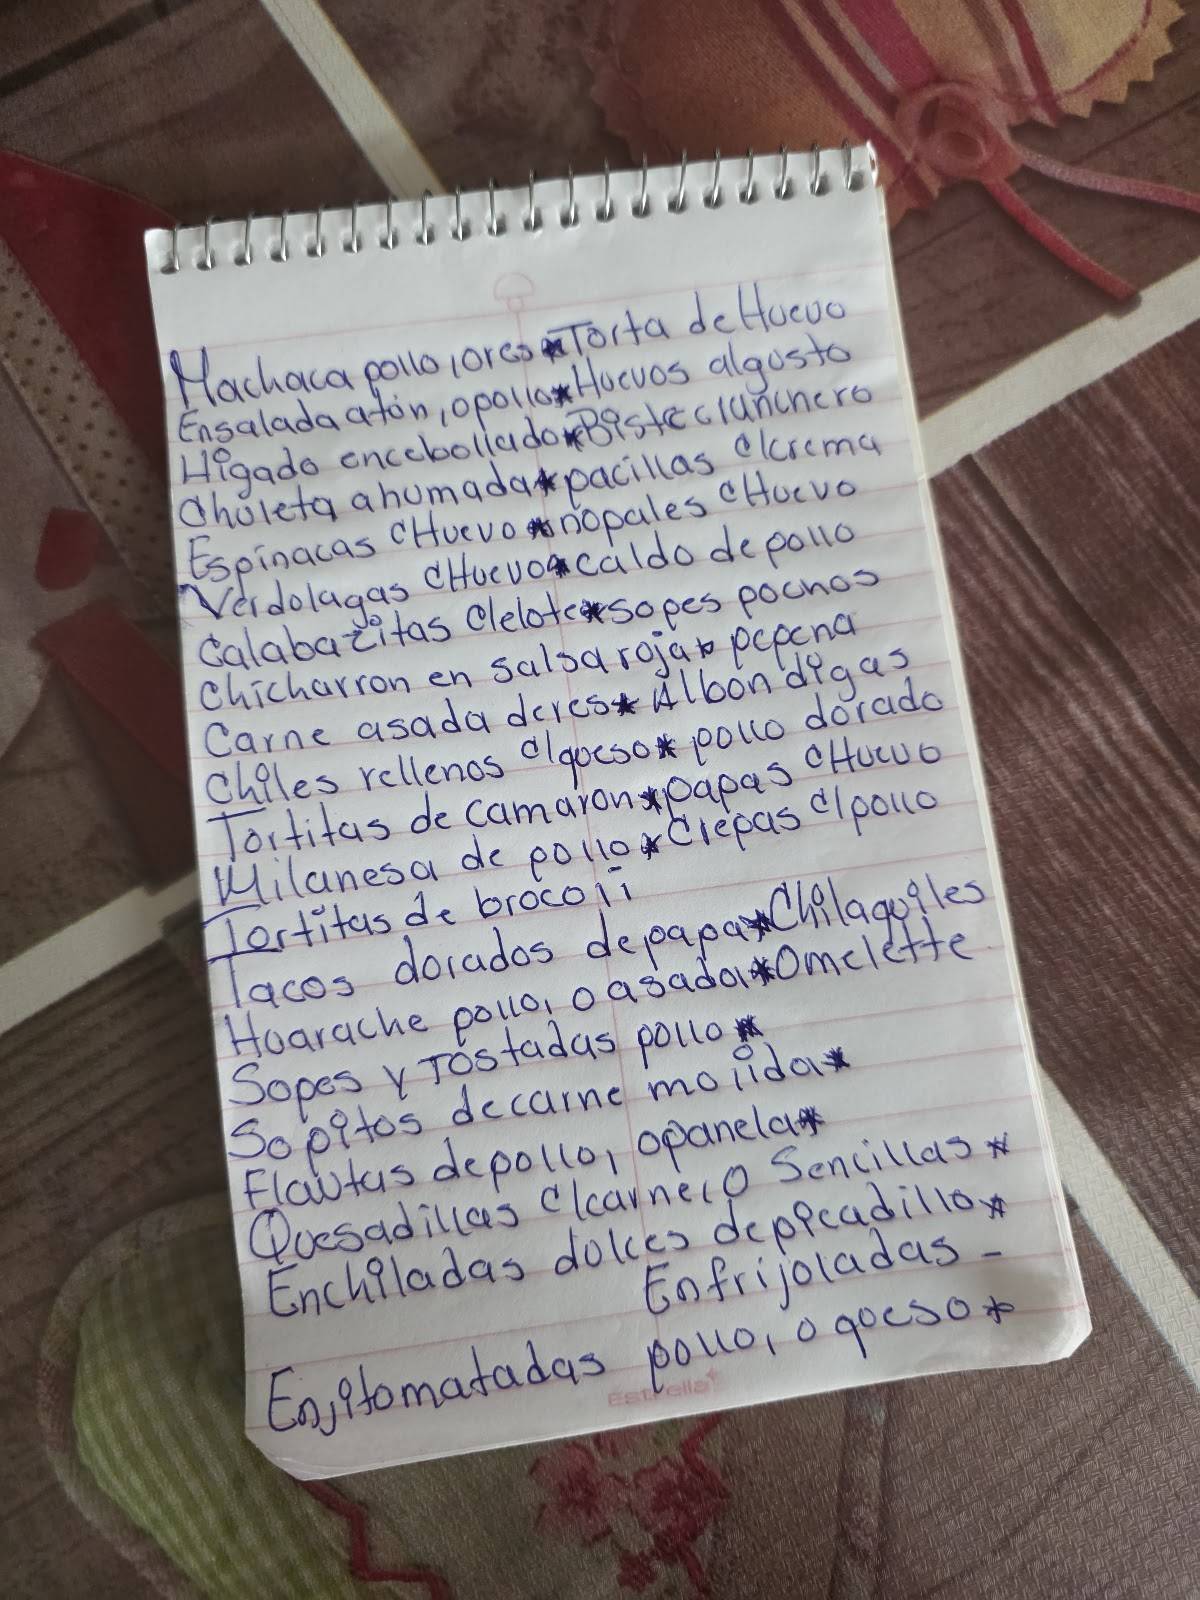 Machaca pollo, ores * Torta de Huevo
Ensalada atón, o pollo * Huevos al gusto
Hígado encebollado * Bistec ranchero
Chuleta ahumada * pacillas c/crema
Espinacas c Huevo * nopales c Huevo
Verdolagas c Huevo * caldo de pollo
Calabazitas c/elote * sopes pocnos
Chicharron en salsa roja * pepena
Carne asada de res * Albondigas
Chiles rellenos c/queso * pollo dorado
Tortitas de camaron * papas c Huevo
Milanesa de pollo * Crepas c/pollo
Tortitas de brocoli
Tacos dorados de papa * Chilaquiles
Huarache pollo, o asada * Omelette
Sopes y Tostadas pollo *
Sopitos de carne molida *
Flautas de pollo, o panela *
Quesadillas c/carne, o Sencillas *
Enchiladas dulces de picadillo *
Enfrijoladas -
Enjitomatadas pollo, o queso *
Estrella